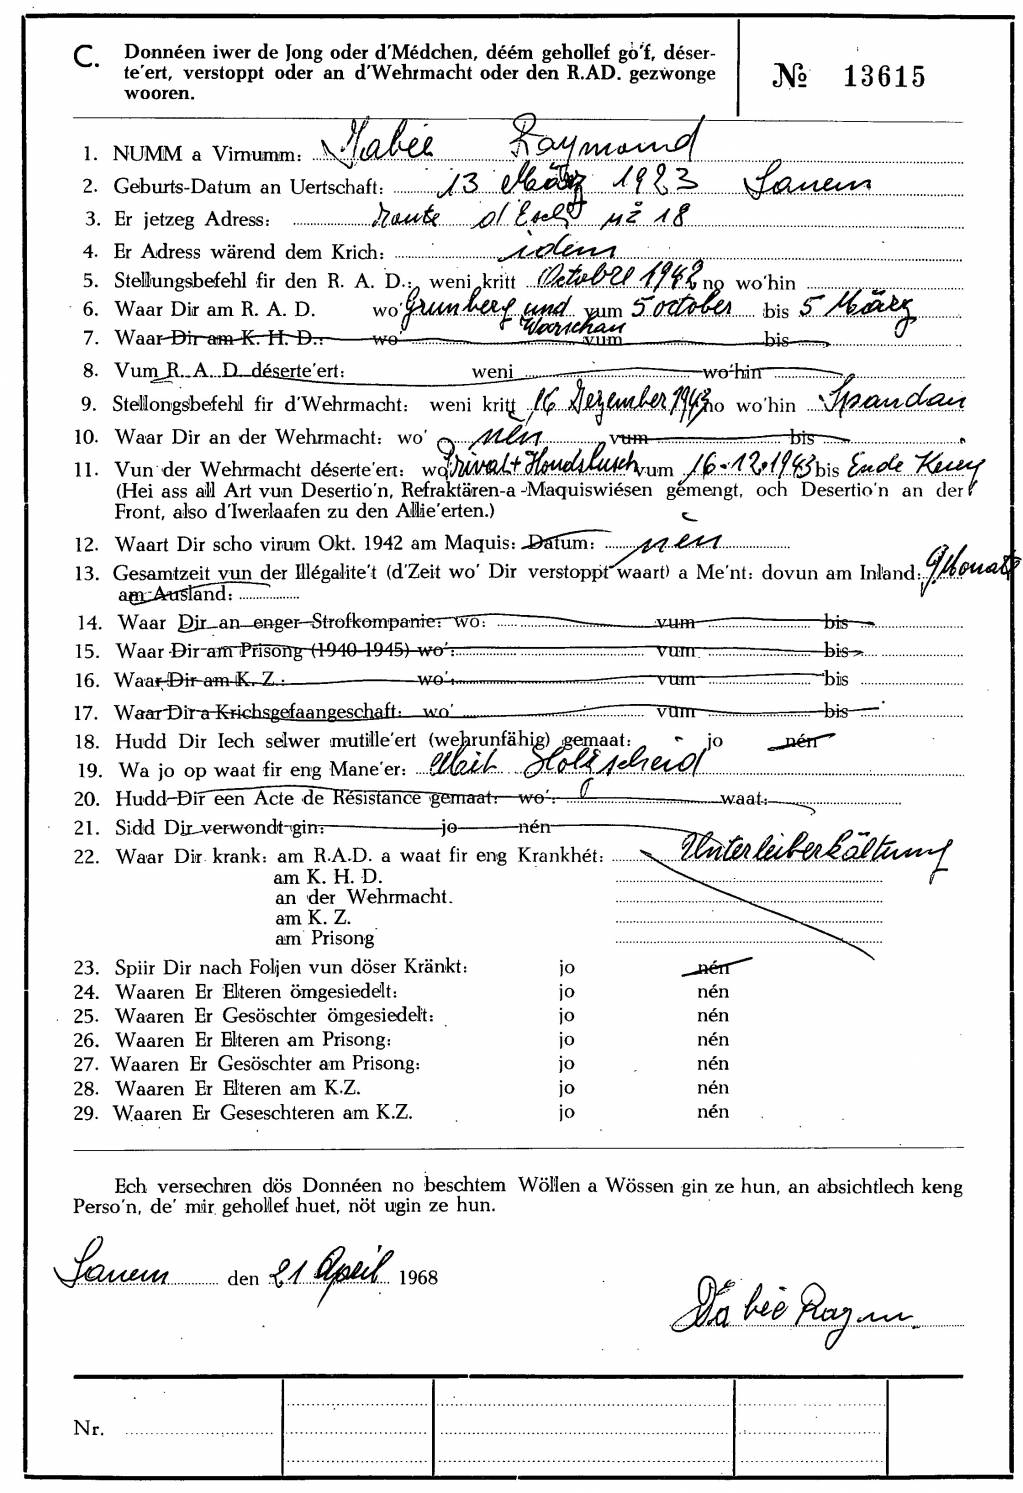 C. Donnéen iwer de Jong oder d'Médchen, déém gehollef gò'f, déser-
te'ert, verstoppt oder an d'Wehrmacht oder den R.AD. gezwonge
wooren.
№ 13615
1. NUMM a Virnumm: Raymond
2. Geburts-Datum an Uertschaft: 13 März 1923 Sanem
3. Er jetzeg Adress: route d'Esch № 18
4. Er Adress wärend dem Krich: idem
5. Stellungsbefehl fir den R. A. D.: weni kritt Octobre 1942 no wo'hin
6. Waar Dir am R. A. D. wo' Grunberg und vum 5 october bis 5 März
Warschau
7. Waar Dir am K. H. D.: wo vum bis
8. Vum R. A. D. déserte'ert: weni wo'hin
9. Stellongsbefehl fir d'Wehrmacht: weni kritt 16 Dezember 1943 no wo'hin Spandau
10. Waar Dir an der Wehrmacht: wo' nèn vum bis
11. Vun der Wehrmacht déserte'ert: wo Privat + Hondsbusch vum 16-12-1943 bis Ende
(Hei ass all Art vun Desertio'n, Refraktären-a-Maquiswiésen gemengt, och Desertio'n an der
Front, also d'Iwerlaafen zu den Allie'erten.)
12. Waart Dir scho virum Okt. 1942 am Maquis: Datum: nèn
13. Gesamtzeit vun der Illégalite't (d'Zeit wo' Dir verstoppt waart) a Me'nt: dovun am Inland: 9 Monate
am Ausland:
14. Waar Dir an enger Strofkompanie: wo: vum bis
15. Waar Dir am Prisong (1940-1945) wo': vum bis
16. Waar Dir am K. Z.: wo': vum bis
17. Waar Dir a Krichsgefaangeschaft: wo' vum bis
18. Hudd Dir Iech selwer mutille'ert (wehrunfähig) gemaat: jo nén
19. Wa jo op waat fir eng Mane'er: Mit Holzscheid
20. Hudd Dir een Acte de Résistance gemaat: wo': waat:
21. Sidd Dir verwondt gin: jo nén
22. Waar Dir krank: am R.A.D. a waat fir eng Krankhét: Unterleiberkältung
am K. H. D.
an der Wehrmacht.
am K. Z.
am Prisong
23. Spiir Dir nach Foljen vun döser Kränkt: jo nén
24. Waaren Er Elteren ömgesiedelt: jo nén
25. Waaren Er Gesöschter ömgesiedelt: jo nén
26. Waaren Er Elteren am Prisong: jo nén
27. Waaren Er Gesöschter am Prisong: jo nén
28. Waaren Er Elteren am K.Z. jo nén
29. Waaren Er Geseschteren am K.Z. jo nén
Ech versechren dös Donnéen no beschtem Wöllen a Wössen gin ze hun, an absichtlech keng
Perso'n, de' mir gehollef huet, nöt ugin ze hun.
Sanem den 21 April 1968
Nr.